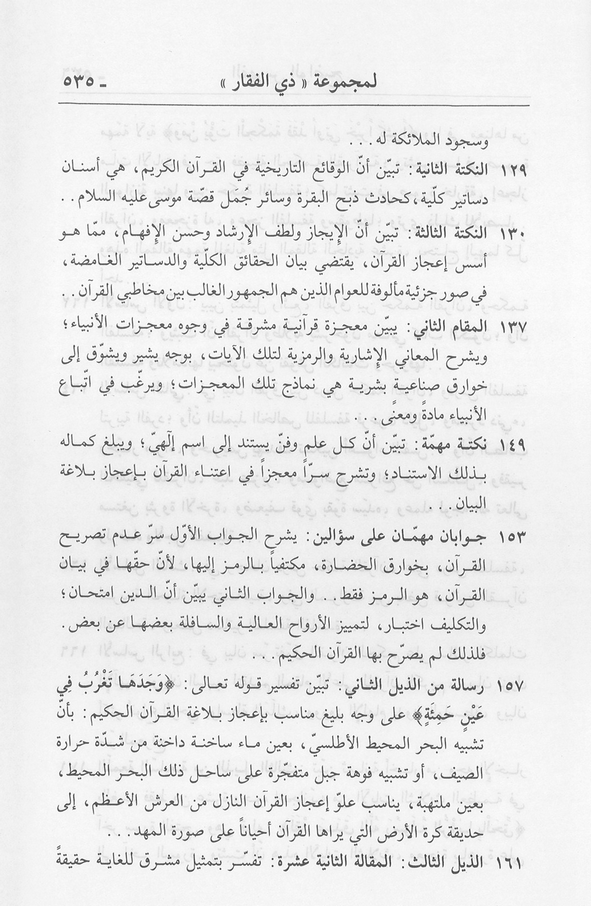 لمجموعة « ذي الفقار » ـ ٥٣٥
وسجود الملائكة له...
١٢٩ النكتة الثانية: تبيّن أنّ الوقائع التاريخية في القرآن الكريم، هي أسنان
دساتير كلّية، كحادث ذبح البقرة وسائر جُمَل قصّة موسى عليه السلام..
١٣٠ النكتة الثالثة: تبيّن أنّ الإيجاز ولطف الإرشاد وحسن الإفهام، ممّا هو
أسس إعجاز القرآن، يقتضي بيان الحقائق الكلّية والدساتير الغامضة،
في صور جزئية مألوفة للعوام الذين هم الجمهور الغالب بين مخاطبي القرآن..
١٣٧ المقام الثاني: يبيّن معجزة قرآنية مشرقة في وجوه معجزات الأنبياء؛
ويشرح المعاني الإشارية والرمزية لتلك الآيات، بوجه يشير ويشوّق إلى
خوارق صناعية بشرية هي نماذج تلك المعجزات؛ ويرغّب في اتّباع
الأنبياء مادةً ومعنًى...
١٤٩ نكتة مهمّة: تبيّن أنّ كل علم وفنّ يستند إلى اسم إلٰهيّ؛ ويبلغ كماله
بذلك الاستناد؛ وتشرح سرّاً معجزاً في اعتناء القرآن بإعجاز بلاغة
البيان...
١٥٣ جوابان مهمّان على سؤالين: يشرح الجواب الأوّل سرّ عدم تصريح
القرآن، بخوارق الحضارة، مكتفياً بالرمز إليها، لأنّ حقّها في بيان
القرآن، هو الرمز فقط.. والجواب الثاني يبيّن أنّ الدين امتحان؛
والتكليف اختبار، لتمييز الأرواح العالية والسافلة بعضها عن بعض.
فلذلك لم يصرّح بها القرآن الحكيم...
١٥٧ رسالة من الذيل الثاني: تبيّن تفسير قوله تعالى: ﴿وَجَدَهَا تَغْرُبُ فِي
عَيْنٍ حَمِئَةٍ﴾ على وجه بليغ مناسب بإعجاز بلاغة القرآن الحكيم: بأنّ
تشبيه البحر المحيط الأطلسيّ، بعين ماء ساخنة داخنة من شدّة حرارة
الصيف، أو تشبيه فوهة جبل متفجّرة على ساحل ذلك البحر المحيط،
بعين ملتهبة، يناسب علوّ إعجاز القرآن النازل من العرش الأعظم، إلى
حديقة كرة الأرض التي يراها القرآن أحياناً على صورة المهد...
١٦١ الذيل الثالث: المقالة الثانية عشرة: تفسّر بتمثيل مشرق للغاية حقيقةً